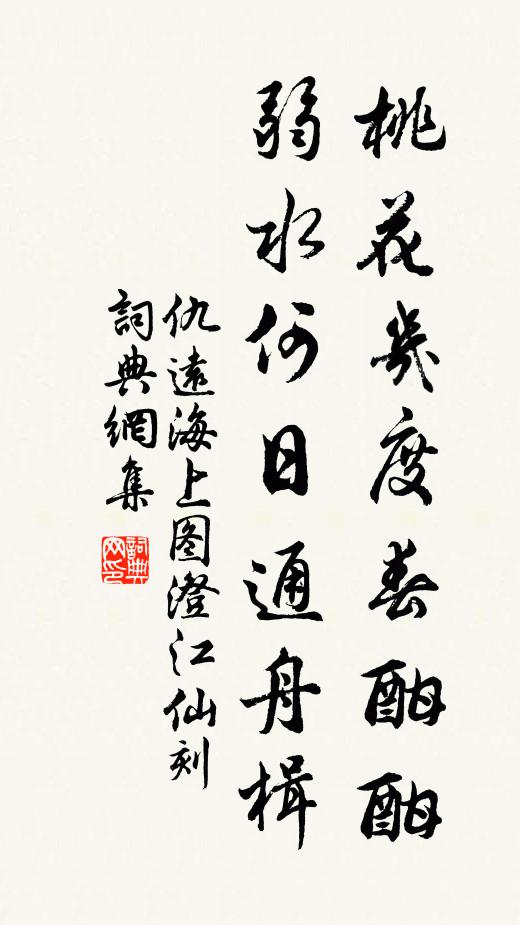 桃花幾度春酣酣
弱水何日通舟楫
仇遠海上图澄江仙刻
詞典網集
詞典网印